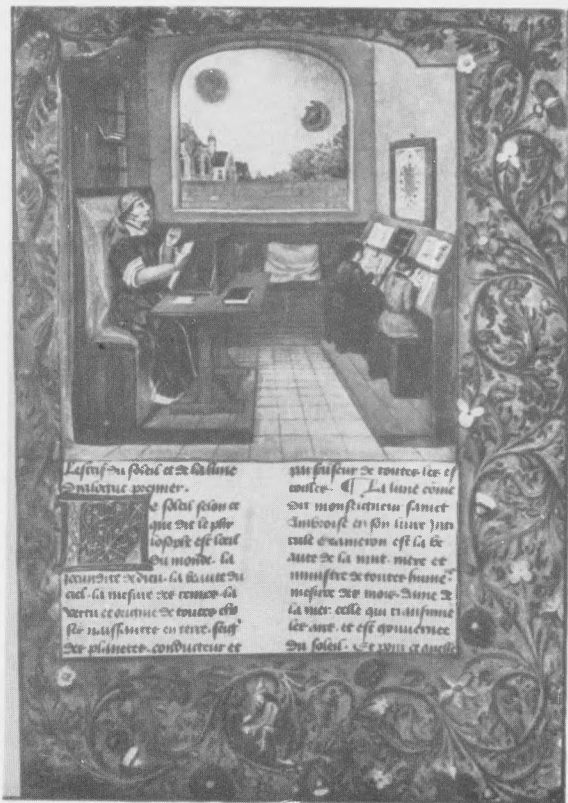 Lestrif du soleil et de la lune
Dyalogue premier.
Le soleil selon ce
que dit le phi
losophe est loeil
du monde. la
iocundite de dieu. la beaute du
ciel. la mesure des temps. la
vertu et origine de toutes cho
ses naissantes en terre. seigr
des planetes. conducteur et
parfaiseur de toutes les es
toilles. ¶ La lune come
dit monseigneur sainct
Ambroise en son liure Inti
tule exameron est la be
aute de la nuit. mere et
ministre de toutes humeurs
mesure des mois. dame de
la mer. celle qui transmue
les ans. et est gouvernee
du soleil. Et pour ce quelle